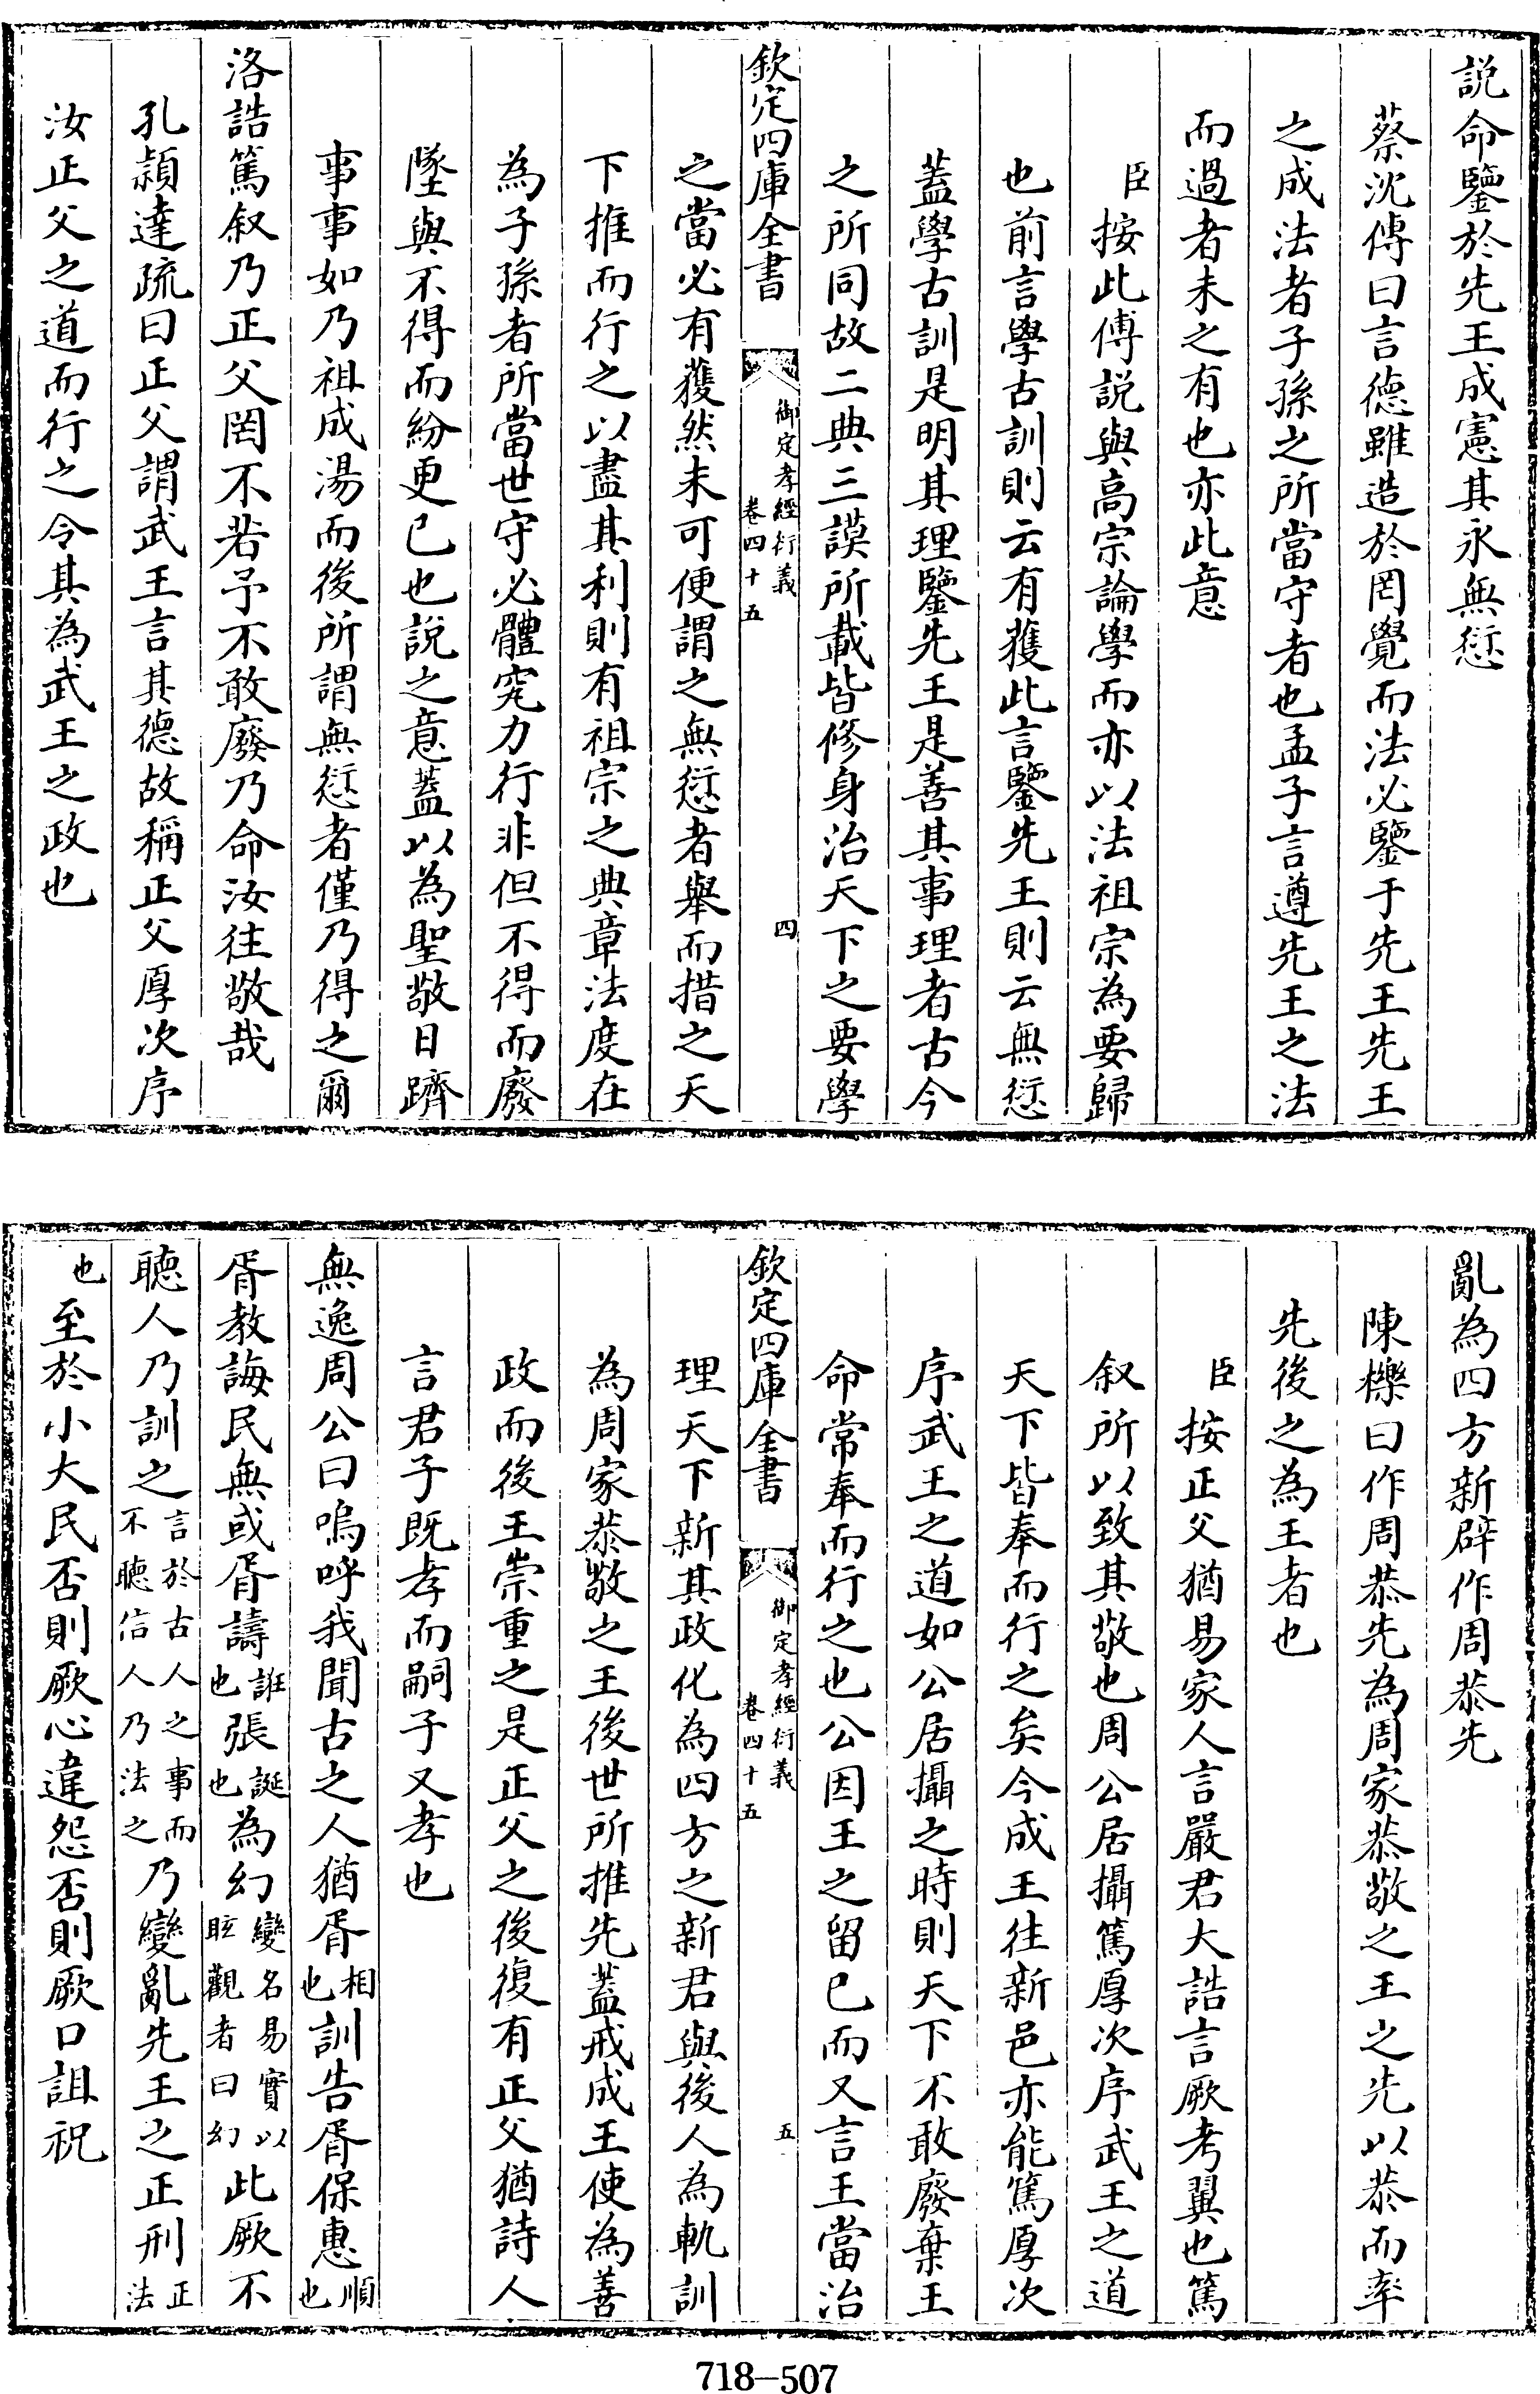 説命鑒於先王成憲其永無愆
蔡沈傳曰言德雖造於罔覺而法必鑒于先王先王
之成法者子孫之所當守者也孟子言遵先王之法
而過者未之有也亦此意
臣按此傅説與高宗論學而亦以法祖宗為要歸
也前言學古訓則云有獲此言鑒先王則云無愆
蓋學古訓是明其理鑒先王是善其事理者古今
之所同故二典三謨所載皆修身治天下之要學
欽定四庫全書
御定孝經衍義
卷四十五
四
之當必有獲然未可便謂之無愆者舉而措之天
下推而行之以盡其利則有祖宗之典章法度在
為子孫者所當世守必體究力行非但不得而廢
墜與不得而紛更已也説之意蓋以為聖敬日躋
事事如乃祖成湯而後所謂無愆者僅乃得之爾
洛誥篤叙乃正父罔不若予不敢廢乃命汝往敬哉
孔穎達疏曰正父謂武王言其德故稱正父厚次序
汝正父之道而行之令其為武王之政也
亂為四方新辟作周恭先
陳櫟曰作周恭先為周家恭敬之王之先以恭而率
先後之為王者也
臣按正父猶易家人言嚴君大誥言厥考翼也篤
叙所以致其敬也周公居攝篤厚次序武王之道
天下皆奉而行之矣今成王往新邑亦能篤厚次
序武王之道如公居攝之時則天下不敢廢棄王
命常奉而行之也公因王之留已而又言王當治
欽定四庫全書
御定孝經衍義
卷四十五
五
理天下新其政化為四方之新君與後人為軌訓
為周家恭敬之王後世所推先蓋戒成王使為善
政而後王崇重之是正父之後復有正父猶詩人
言君子既孝而嗣子又孝也
無逸周公曰嗚呼我聞古之人猶胥相也訓告胥保惠順也
胥教誨民無或胥譸誑也張誕也為幻變名易實以眩觀者曰幻此厥不
聽人乃訓之言於古人之事而不聽信人乃法之乃變亂先王之正刑正法
也至於小大民否則厥心違怨否則厥口詛祝
718-507